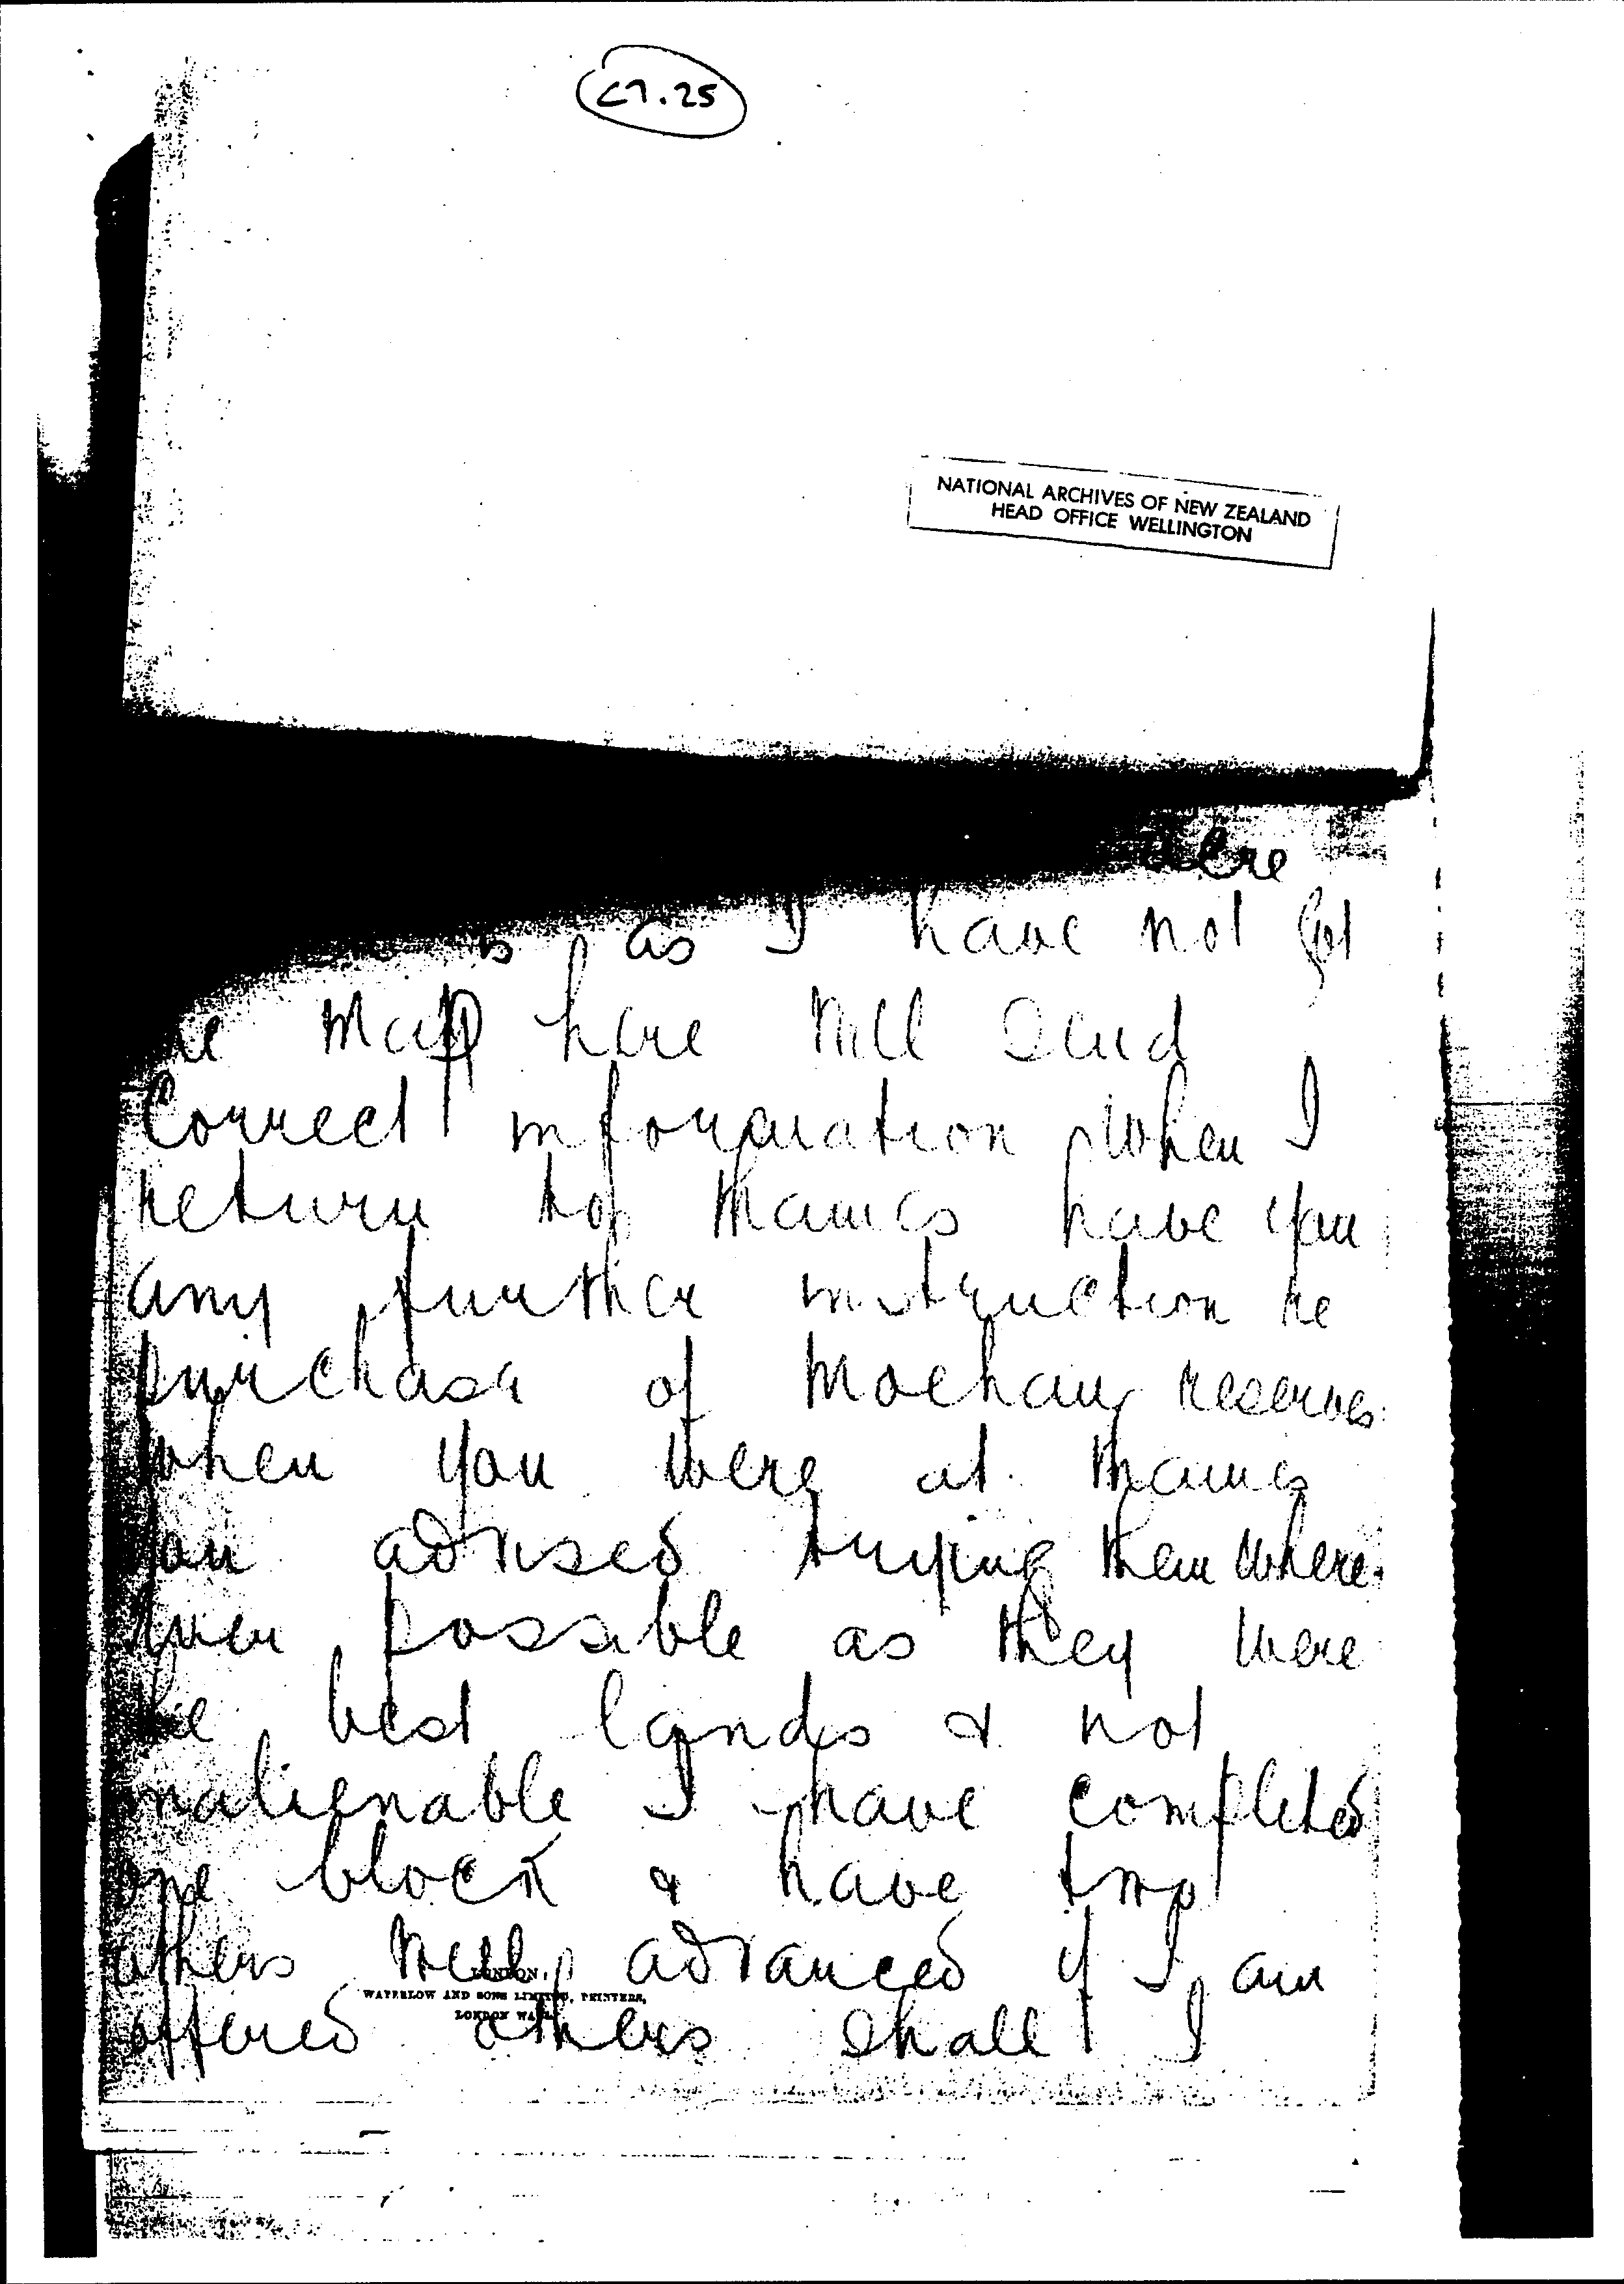 C7.25
NATIONAL ARCHIVES OF NEW ZEALAND
HEAD OFFICE WELLINGTON
as I have not got
map here will send
correct information when I
return to Thames have you
any further instruction re
purchase of Moehau reserves
when you were at Thames
you advised buying them where
ever possible as they were
the best lands & not
inalienable I have completed
one block & have two
others well advanced if I am
LONDON,
WATERLOW AND SONS LIMITED, PRINTERS,
LONDON WALL
offered others shall I